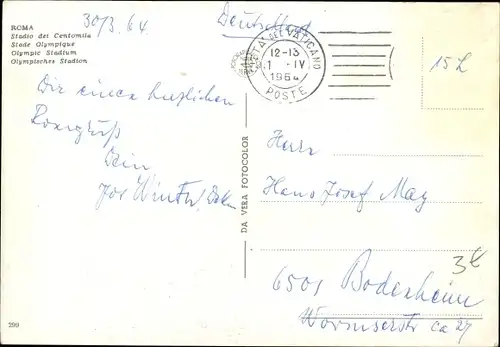 ROMA
Stadio dei Centomila
Stade Olympique
Olympic Stadium
Olympisches Stadion
30/3.64
Deutschland
CITTÀ DEL VATICANO
12-13
1 -IV
1964
POSTE
15 L
Dir einen herzlichen
Romgruß
Dein
Jos Winter,
DA VERA FOTOCOLOR
Herrn
Hans Josef May
6501 Bodenheim
Wormserstr ca 27
3€
290